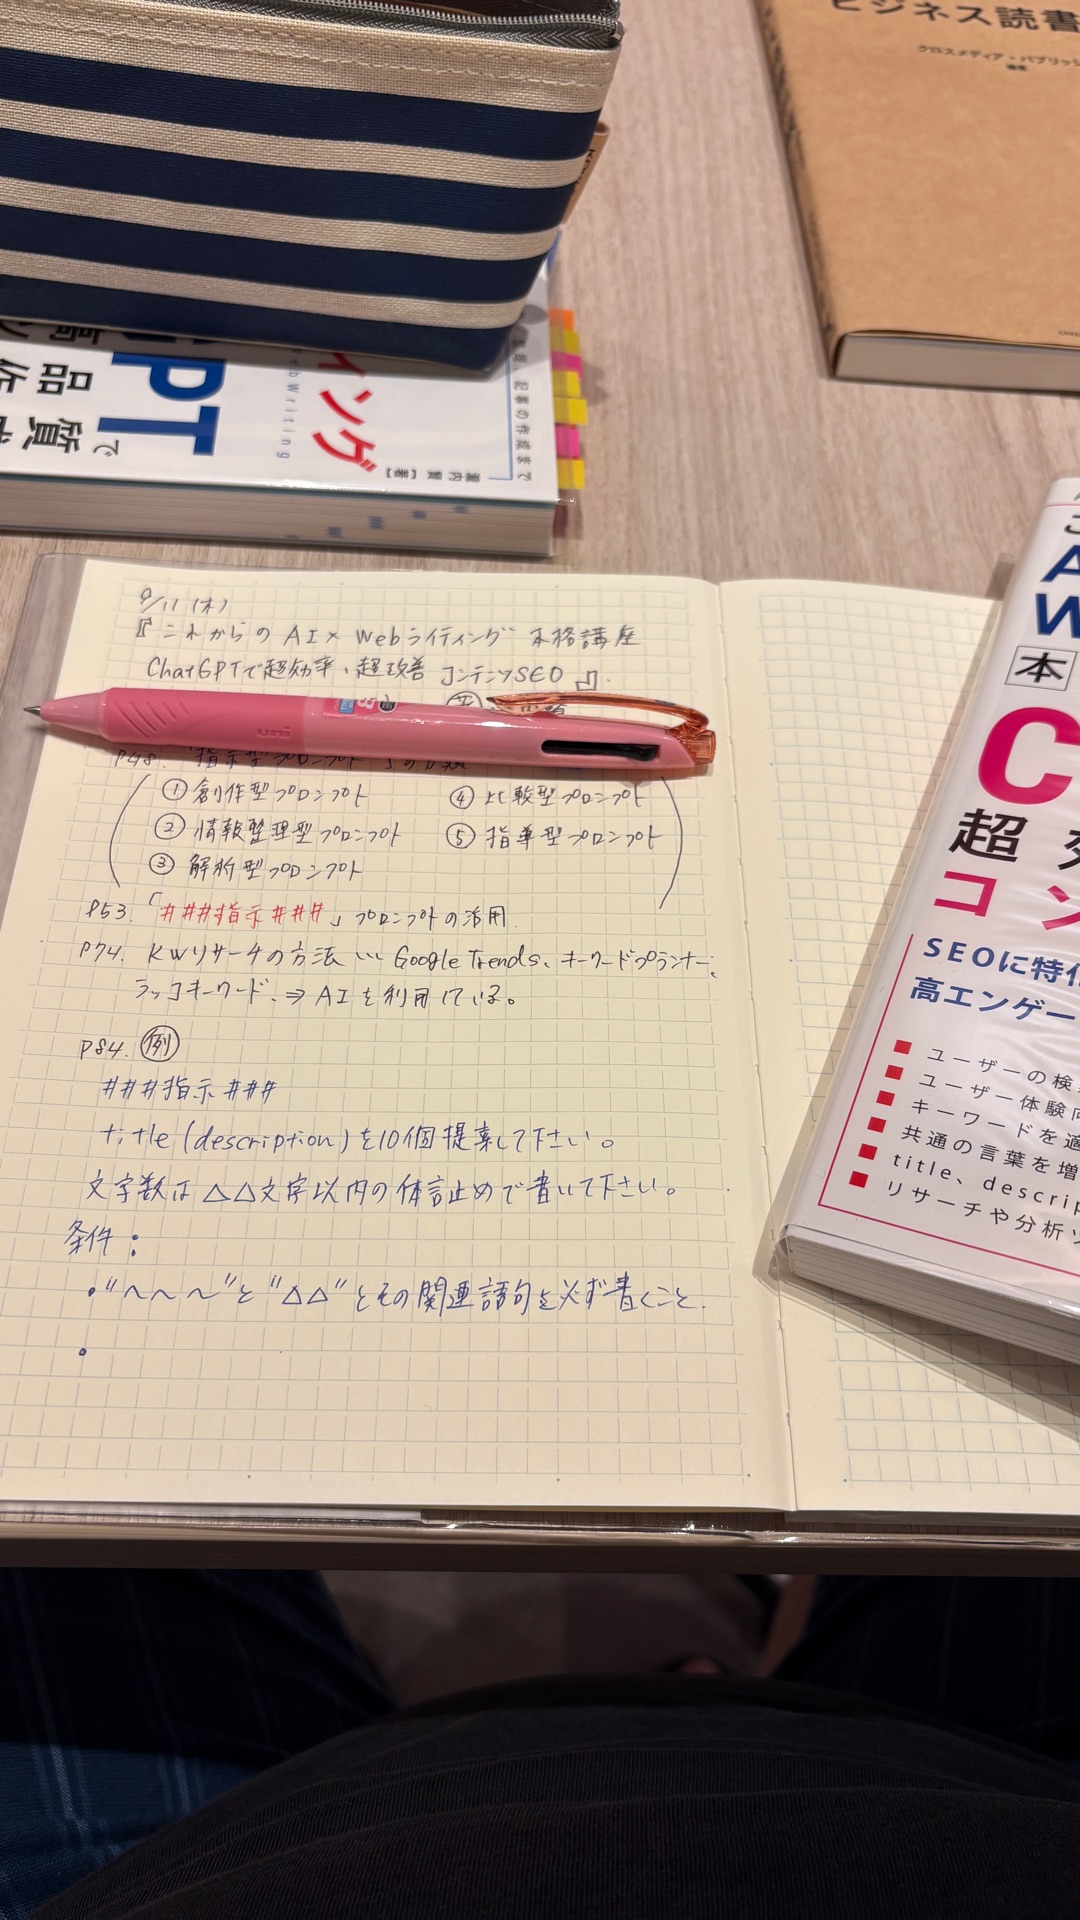 ビジネス読書
クロスメディア・パブリッシ
編著
PT
で
品
質
イング
eb Writing
記事の作成まで
瀧内賢【著】
9/11(木)
『これからのAI×Webライティング本格講座
ChatGPTで超効率・超改善コンテンツSEO』.
uni
P48.「指示型プロンプト」の分類
①創作型プロンプト ④比較型プロンプト
②情報整理型プロンプト ⑤指導型プロンプト
③解析型プロンプト
P53.「###指示###」プロンプトの活用.
P74. KWリサーチの方法 Google Trends、キーワードプランナー、
ラッコキーワード、⇒AIを利用している。
P84. 例
###指示###
title(description)を10個提案して下さい。
文字数は△△文字以内の体言止めで書いて下さい。
条件:
・"〜〜〜"と"△△"とその関連語句を必ず書くこと.
・
A
W
本
C
超
コン
SEOに特化
高エンゲー
■ユーザーの検
■ユーザー体験向
■キーワードを適
■共通の言葉を増
■title、descrip
■リサーチや分析ツ